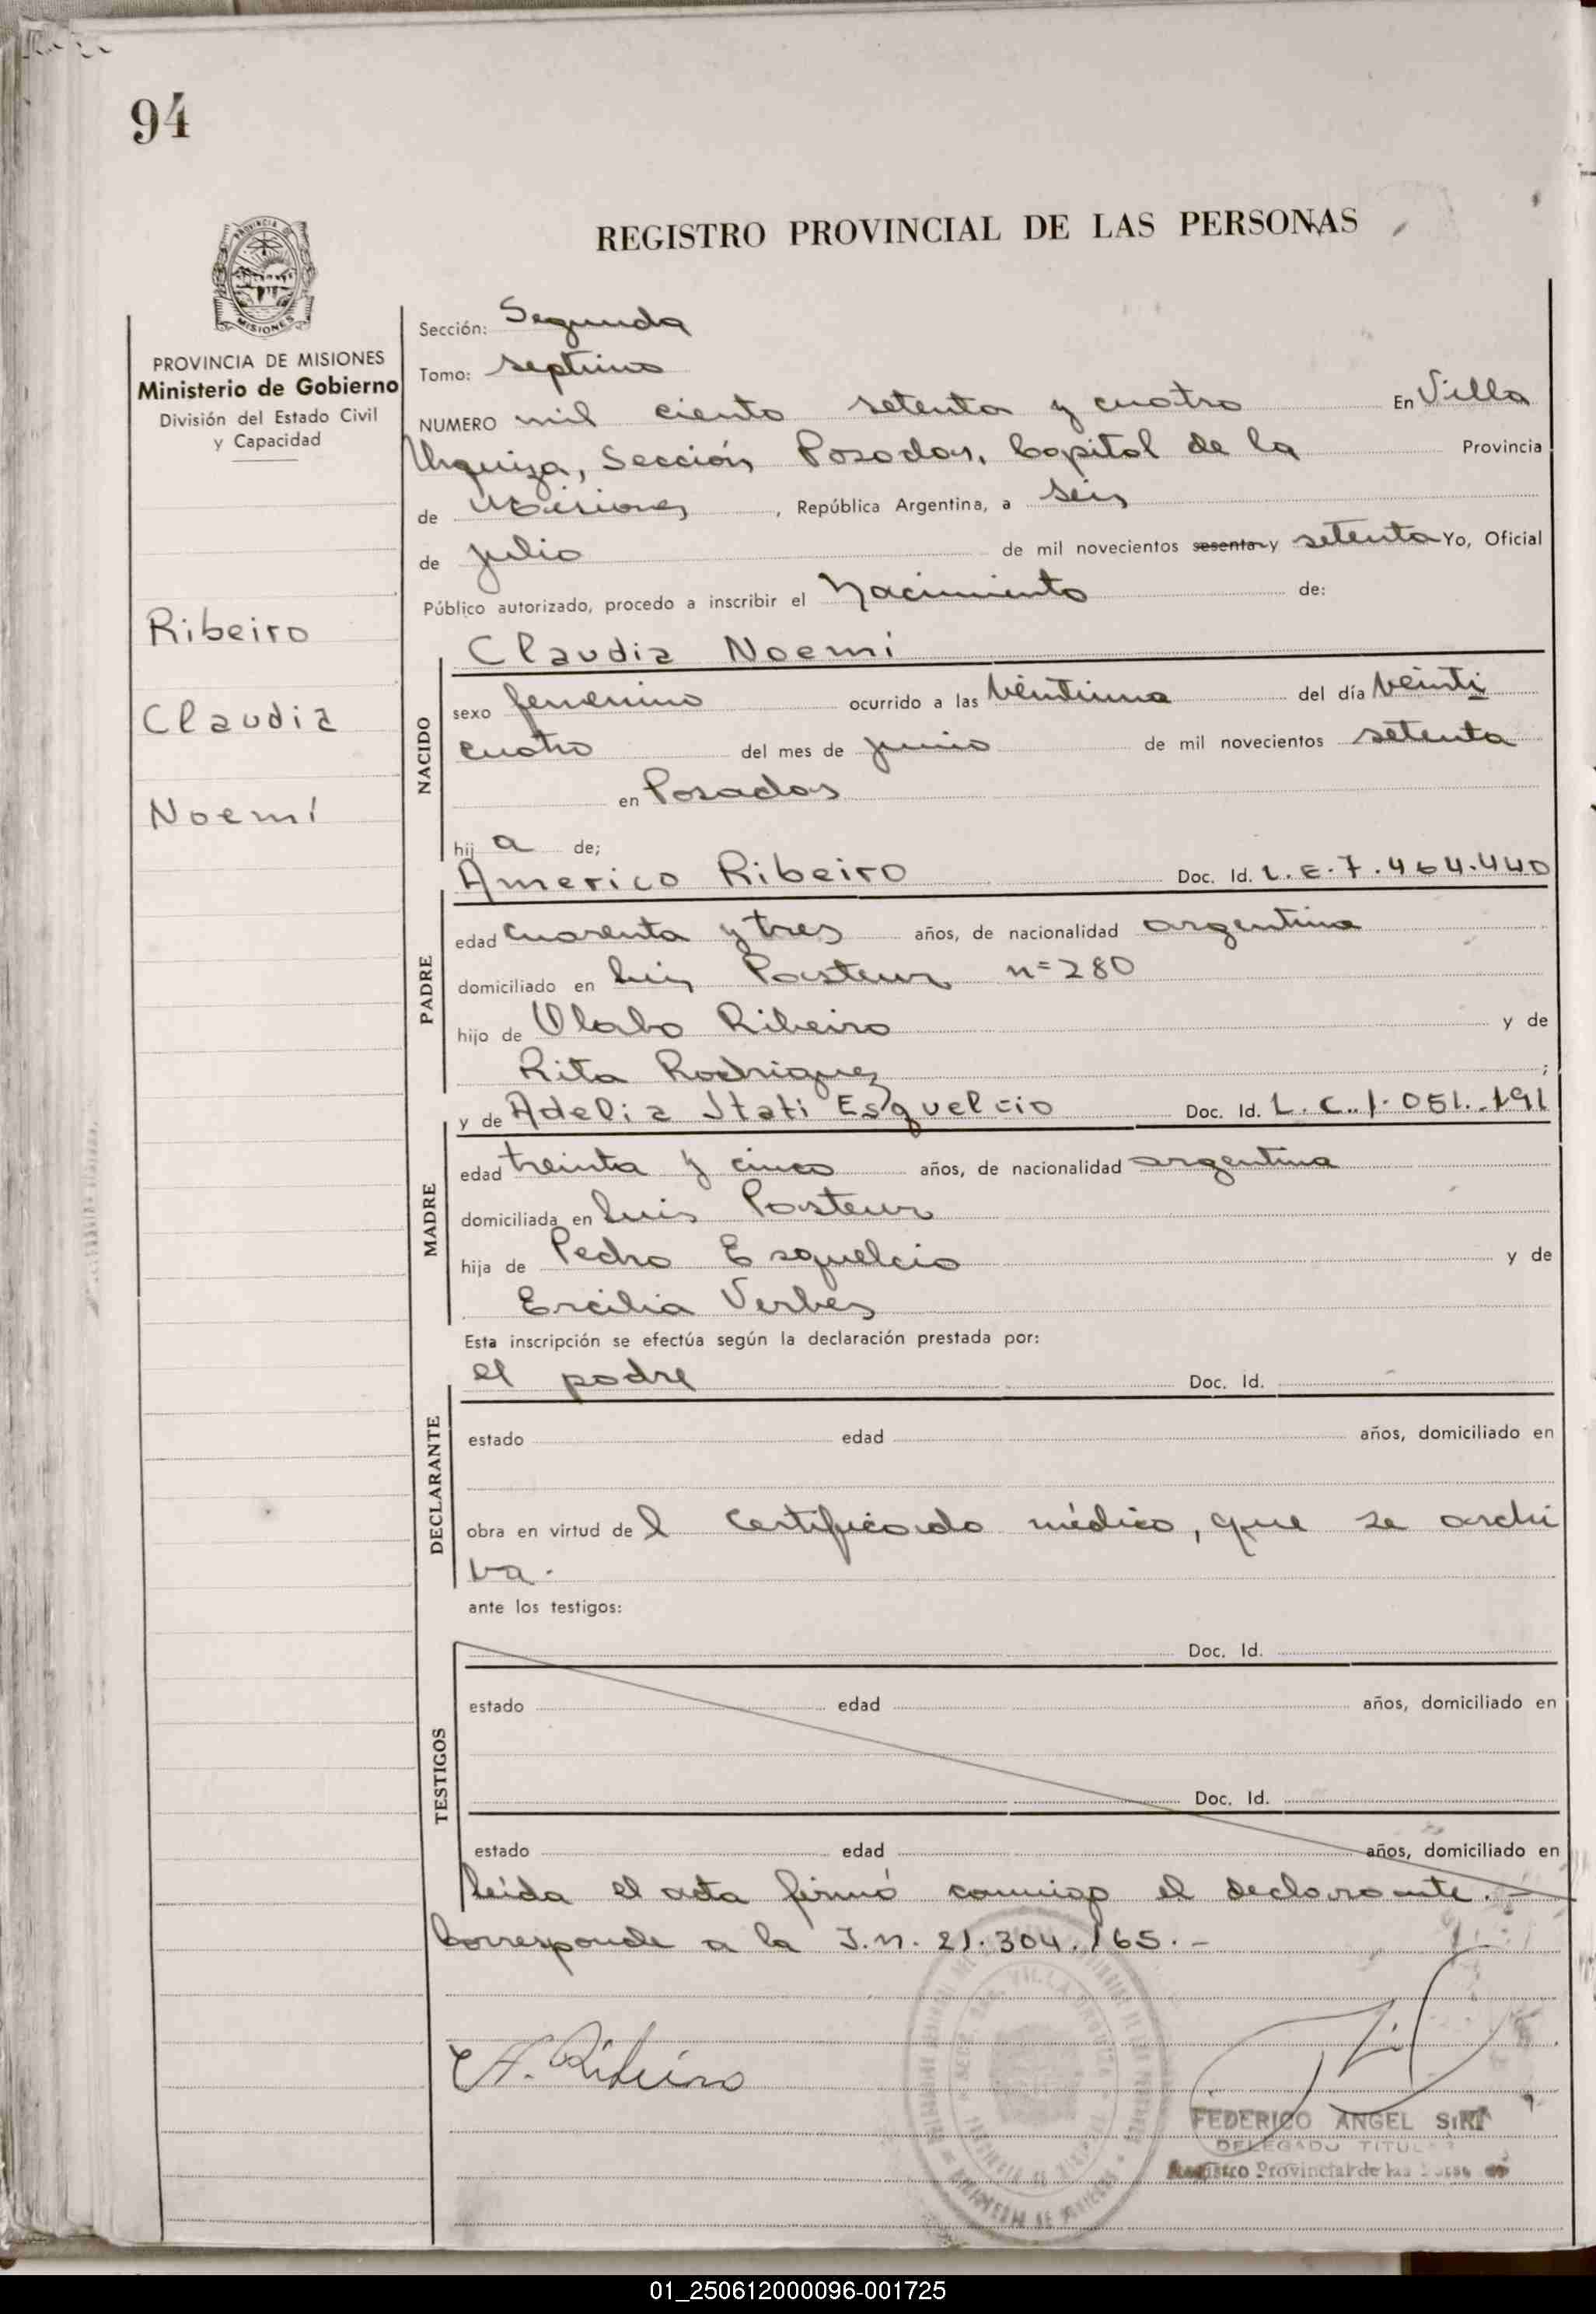 94
REGISTRO PROVINCIAL DE LAS PERSONAS
PROVINCIA DE MISIONES
MISIONES
PROVINCIA DE MISIONES
Ministerio de Gobierno
División del Estado Civil
y Capacidad
Ribeiro
Claudia
Noemí
Sección: Segunda
Tomo: septimo
NUMERO mil ciento setenta y cuatro En Villa
Urquiza, Sección Posadas, Capital de la Provincia
de Misiones, República Argentina, a seis
de julio de mil novecientos sesenta y setenta Yo, Oficial
Público autorizado, procedo a inscribir el Nacimiento de:
NACIDO
Claudia Noemí
sexo femenino ocurrido a las veintiuna del día veinti
cuatro del mes de junio de mil novecientos setenta
en Posadas
hij a de;
PADRE
Americo Ribeiro Doc. Id. L.E.7.464.440
edad cuarenta y tres años, de nacionalidad argentina
domiciliado en Luis Pasteur n=280
hijo de Olabo Ribeiro y de
Rita Rodriguez ;
MADRE
y de Adelia Itati Esquelcio Doc. Id. L.C.1.051.191
edad treinta y cinco años, de nacionalidad argentina
domiciliada en Luis Pasteur
hija de Pedro Esquelcio y de
Ercilia Verbes
Esta inscripción se efectúa según la declaración prestada por:
DECLARANTE
el padre Doc. Id.
estado edad años, domiciliado en
obra en virtud de l certificado médico, que se archi
va.
ante los testigos:
TESTIGOS
Doc. Id.
estado edad años, domiciliado en
Doc. Id.
estado edad años, domiciliado en
leída el acta firmó conmigo el declarante.-
Corresponde a la I.n. 21.304.165.-
A. Ribeiro
VILLA URQUIZA
FEDERICO ANGEL SIRI
DELEGADO TITULAR
Registro Provincial de las
01_250612000096-001725